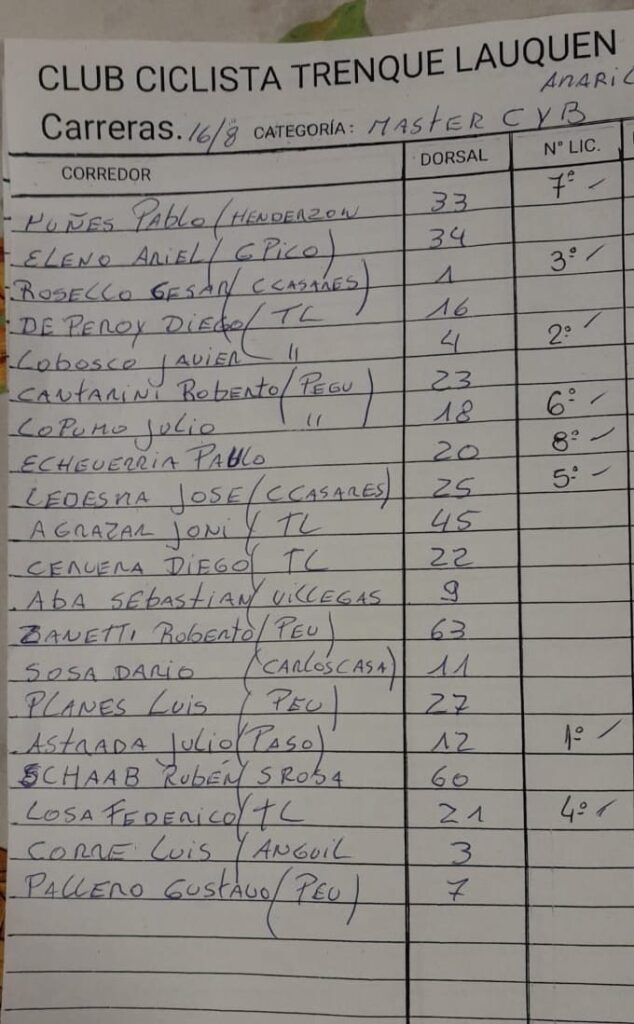 CLUB CICLISTA TRENQUE LAUQUEN
AMARIL
Carreras. 16/8 CATEGORÍA: MASTER C Y B
CORREDOR DORSAL N° LIC.
MUÑES PABLO / HENDERZON 33 7º ✓
ELENO ARIEL / G PICO) 34
ROSELLO CESAR / CCASARES) 1 3º ✓
DE PEROY DIEGO / TL 16
LOBOSCO JAVIER " 4 2º ✓
CANTARINI ROBERTO / PEGU) 23
LOPUMO JULIO " 18 6º ✓
ECHEVERRIA PABLO 20 8º ✓
LEDESMA JOSE / CCASARES) 25 5º ✓
AGRAZAR JONI / TL 45
CERVERA DIEGO / TL 22
ABA SEBASTIAN / VILLEGAS 9
ZANETTI ROBERTO / PEU) 63
SOSA DARIO (CARLOSCASA) 11
PLANES LUIS ( PEU) 27
ASTRADA JULIO (PASO) 12 1º ✓
SCHAAB RUBEN / S ROSA 60
LOSA FEDERICO / TL 21 4º ✓
CORRE LUIS / ANGUIL 3
PALLERO GUSTAVO (PEU) 7